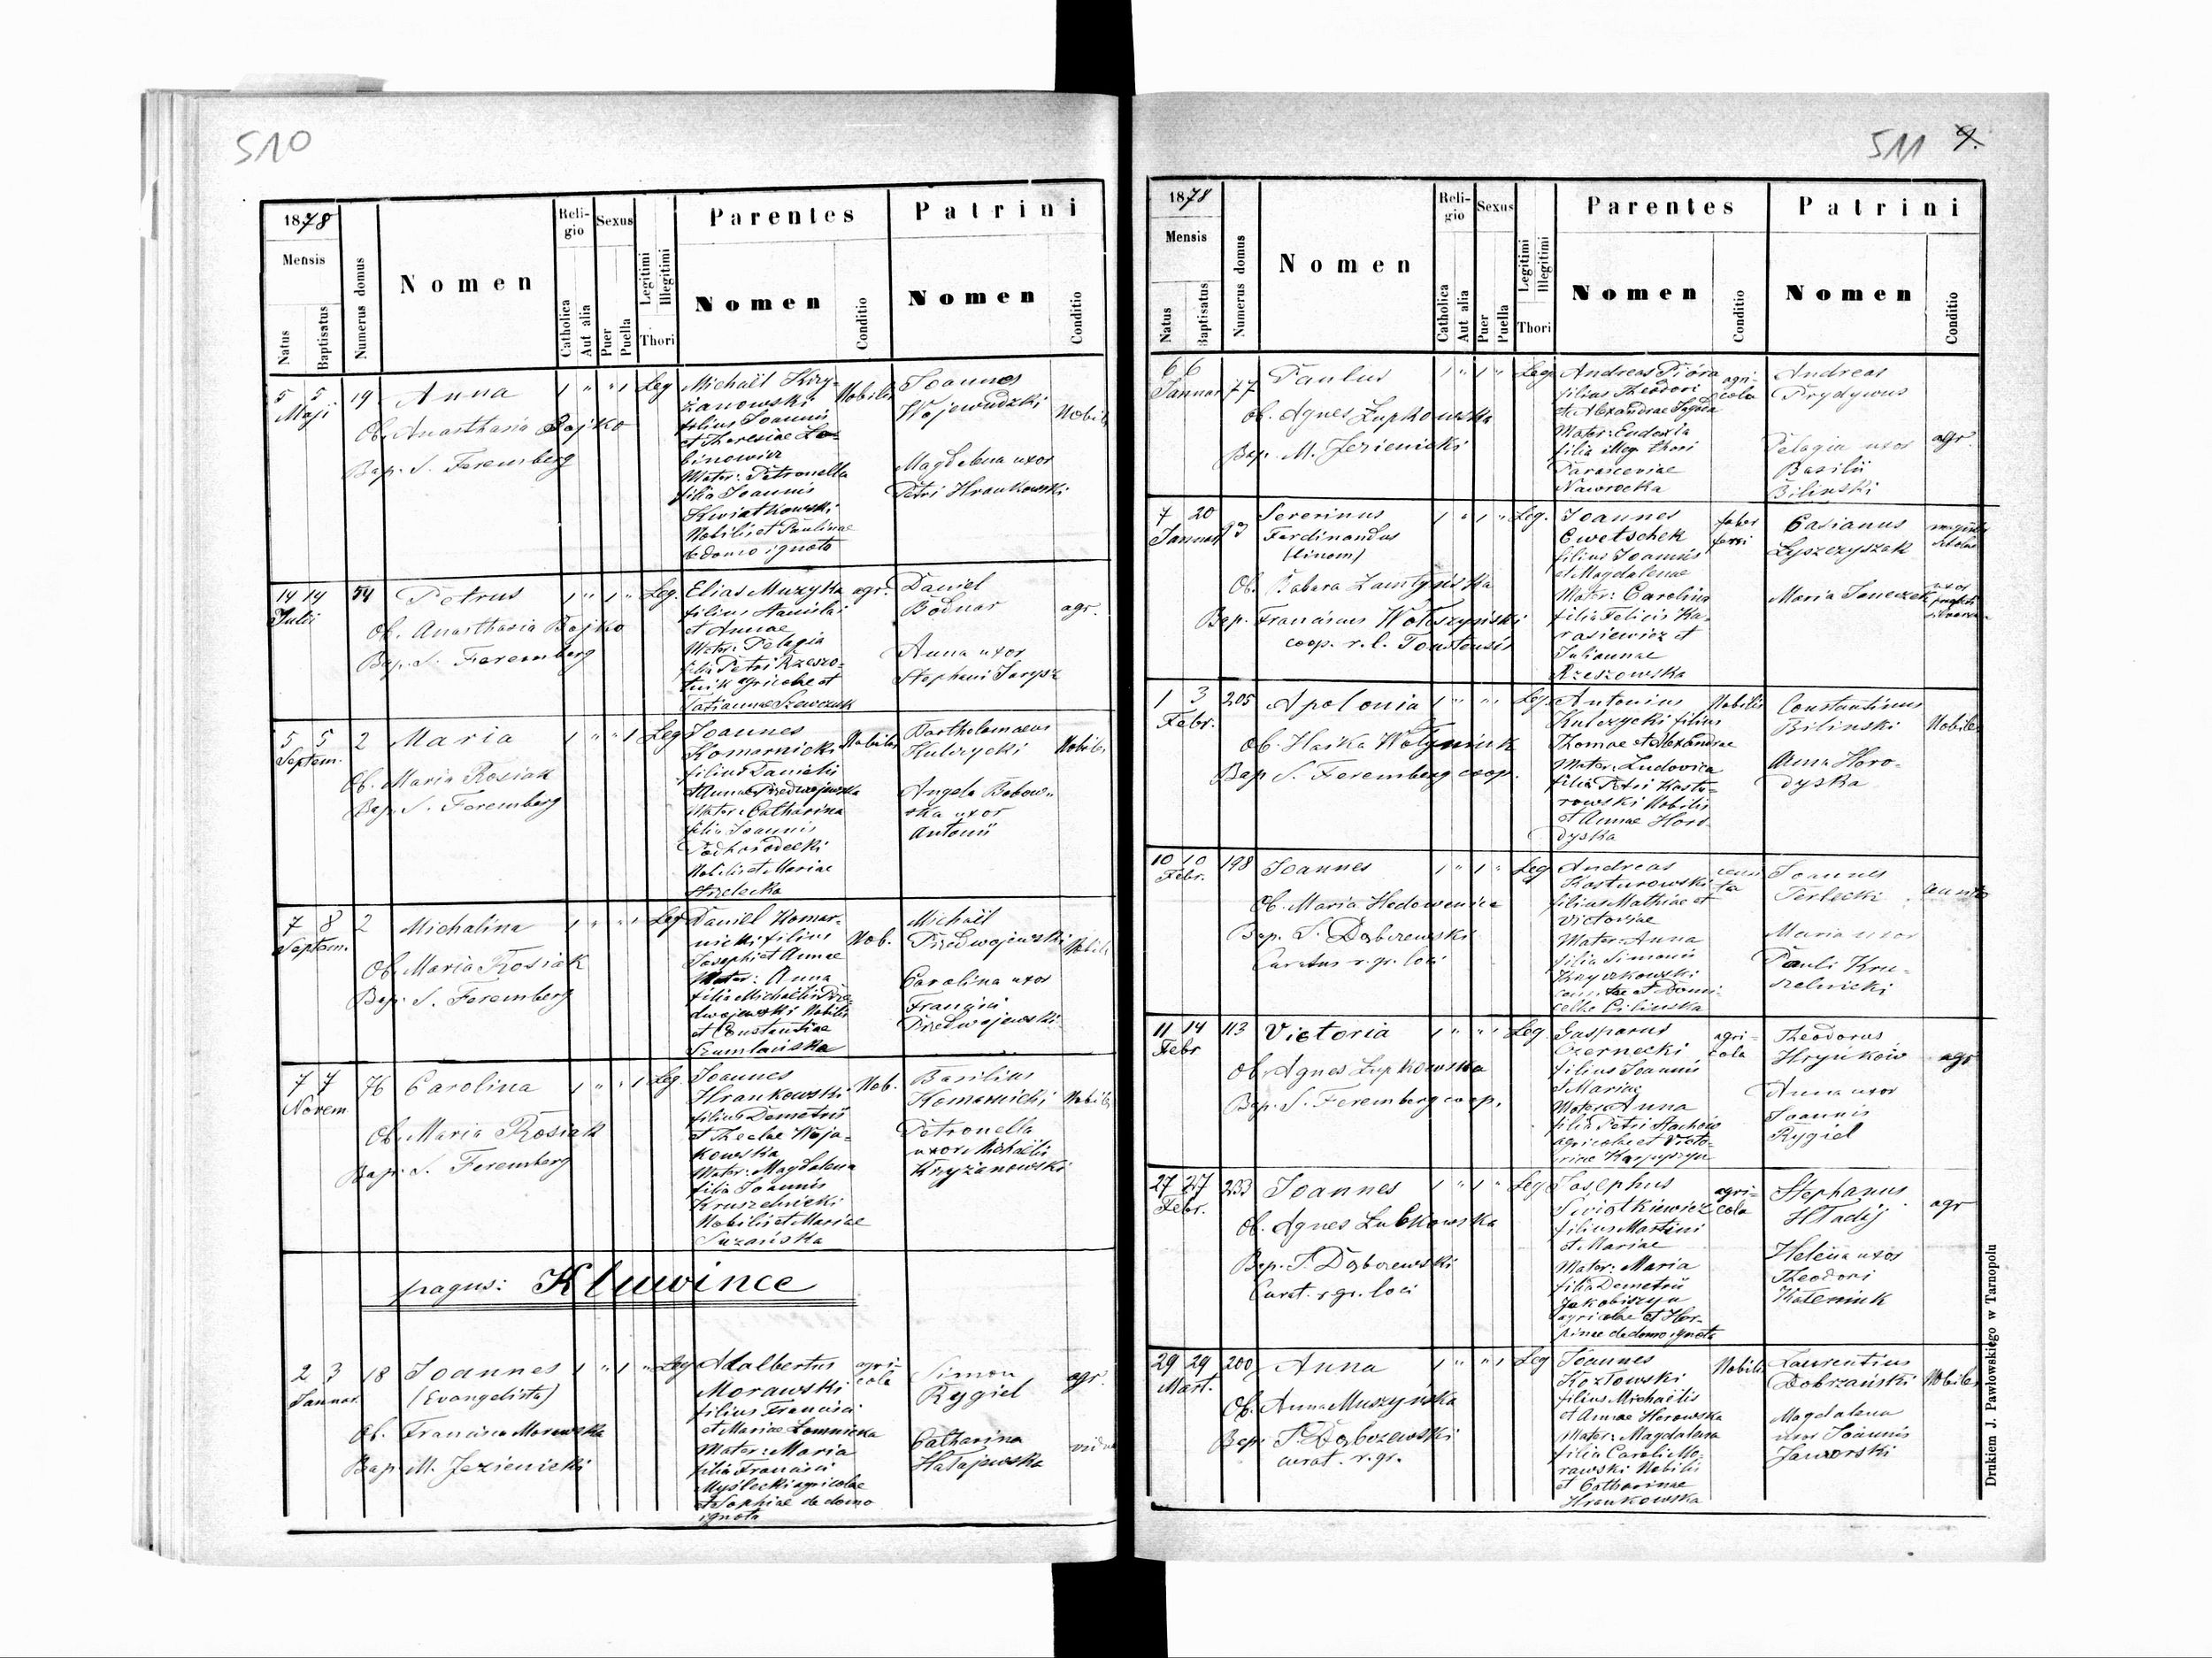 510
1878
Mensis
Natus
Baptisatus
Numerus domus
Nomen
Religio
Catholica
Aut alia
Sexus
Puer
Puella
Legitimi
Illegitimi
Thori
Parentes
Nomen
Conditio
Patrini
Nomen
Conditio
5 5
Maji
19
Anna
Ob. Anasthasia Bajko
Bap. S. Feremberg
1 " " 1 Leg
Michaël Krzy-
żanowski
filius Joannis
et Theresiae
Mater: Petronella
filia Joannis
Kwiatkowski
Nobilis et Paulinae
de domo ignota
Nobilis
Joannes
Wojewudzki
Magdalena uxor
Petri Hrankowski
Nobilis
14 14
Julii
54
Petrus
Ob. Anasthasia Bajko
Bap. S. Feremberg
1 " 1 " Leg.
Elias Muzyka
filius
et Annae
Mater: Pelagia
filia Petri Rzeszo-
tnik agricolae et
Tatiannae Szewczuk
agr.
Daniel
Bodnar
Anna uxor
Stephani
agr.
5 5
Septem.
2
Maria
Ob. Maria Rosiak
Bap. S. Feremberg
1 " " 1 Leg
Joannes
Komarnicki
filius Danielis
et Annae Predwojewska
Mater: Catharina
filia Joannis
Podhorodecki
Nobilis et Mariae
Strzelecka
Nobilis
Bartholomaeus
Kulczycki
Angela Bobow-
ska uxor
Antonii
Nobilis
7 8
Septem.
2
Michalina
Ob. Maria Rosiak
Bap. S. Feremberg
1 " " 1 Leg
Daniel Komar-
nicki filius
Josephi et Annae
Mater: Anna
filia Michaëlis Pre-
dwojewski Nobilis
et Constantiae
Szumlańska
Nob.
Michaël
Predwojewski
Carolina uxor
Francisci
Predwojewski
Nobilis
7 7
Novem
76
Carolina
Ob. Maria Rosiak
Bap. S. Feremberg
1 " " 1 Leg.
Joannes
Hrankowski
filius Demetrii
et Theclae Woja-
kowska
Mater: Magdalena
filia Joannis
Kruszelnicki
Nobilis et Mariae
Nob.
Basilius
Komarnicki
Petronella
uxor Michaëlis
Krzyżanowski
Nobilis
pagus: Kluwince
2 3
Januar.
18
Joannes
(Evangelista)
Ob. Francisca Morawska
Bap. M. Jezienicki
1 " 1 " Leg
Adalbertus
Morawski
filius Francisci
et Mariae Łomnicka
Mater: Maria
filia Francisci
Myślecki agricolae
et Sophiae de domo
ignota
agri-
cola
Simon
Rygiel
Catharina
Hałajewska
agr.
vidua
511 9.
1878
Mensis
Natus
Baptisatus
Numerus domus
Nomen
Religio
Catholica
Aut alia
Sexus
Puer
Puella
Legitimi
Illegitimi
Thori
Parentes
Nomen
Conditio
Patrini
Nomen
Conditio
6 6
Januar
77
Paulus
Ob. Agnes Zupkowska
Bap. M. Jezienicki
1 " 1 " Leg.
Andreas Pióra
filius Theodori
et Alexandrae
Mater: Eudoxia
filia Illeg. thori
Parasceviae
Nawrocka
agri-
cola
Andreas
Prydywus
Pelagia uxor
Basilii
Bilinski
agr.
7 20
Januar
Severinus
Ferdinandus
(binom)
Ob. Babara
Bap. Franciscus Wołoszyński
coop. r. l. Toustensis
1 " 1 " Leg.
Joannes
Cwetschek
filius Joannis
et Magdalenae
Mater: Carolina
filia Felicis Ka-
rasiewicz et
Juliannae
Rzeszowska
faber
ferri
Casianus
Łyszczyszak
Maria Janeczek
uxor
1 3
Febr.
205
Apolonia
Ob. Haśka Wołyniuk
Bap S. Feremberg coop.
1 " " Leg.
Antonius
Kulczycki filius
Thomae et Alexandrae
Mater: Ludovica
filia Petri Kostu-
rowski Nobilis
et Annae Horo-
dyska
Nobilis
Constantinus
Bilinski
Anna Horo-
dyska
Nobiles
10 10
Febr.
198
Joannes
Ob. Maria
Bap. S. Dąbczewski
Curatus r. gr. loci
1 " 1 " Leg
Andreas
Kosturowski
filius Mathiae et
Victoriae
Mater: Anna
filia Simonis
Krzyczkowski
et Domi-
Joannes
Terlecki
Maria uxor
Pauli Kru-
szelnicki
11 14
Febr
113
Victoria
Ob. Agnes Zupkowska
Bap. S. Feremberg coop.
1 " " 1 Leg
Gasparus
Czernecki
filius Joannis
et Mariae
Mater: Anna
filia Petri Stachów
agricolae et Victo-
riae
agri-
cola
Theodorus
Hryńków
Anna uxor
Joannis
Rygiel
agr
27 27
Febr.
233
Joannes
Ob. Agnes Zubkowska
Bap. S. Dąbczewski
Curat. r. gr. loci
1 " 1 " Leg
Josephus
Świątkiewicz
filius Martini
et Mariae
Mater: Maria
filia Demetrii
Jakobiszyn
agricolae et Hor-
pinae de domo ignota
agri-
cola
Stephanus
Hładij
Helena uxor
Theodori
Kateniuk
agr
29 29
Mart.
200
Anna
Ob. Anna Muszyńska
Bap. S. Dąbczewski
curat. r. gr.
1 " " 1 Leg
Joannes
Kozłowski
filius Michaëlis
et Annae Horowska
Mater: Magdalena
filia Caroli Mo-
rawski Nobilis
et Catharinae
Hrankowska
Nobilis
Laurentius
Dobrzański
Magdalena
uxor Joannis
Jaworski
Nobiles
Drukiem J. Pawłowskiego w Tarnopolu